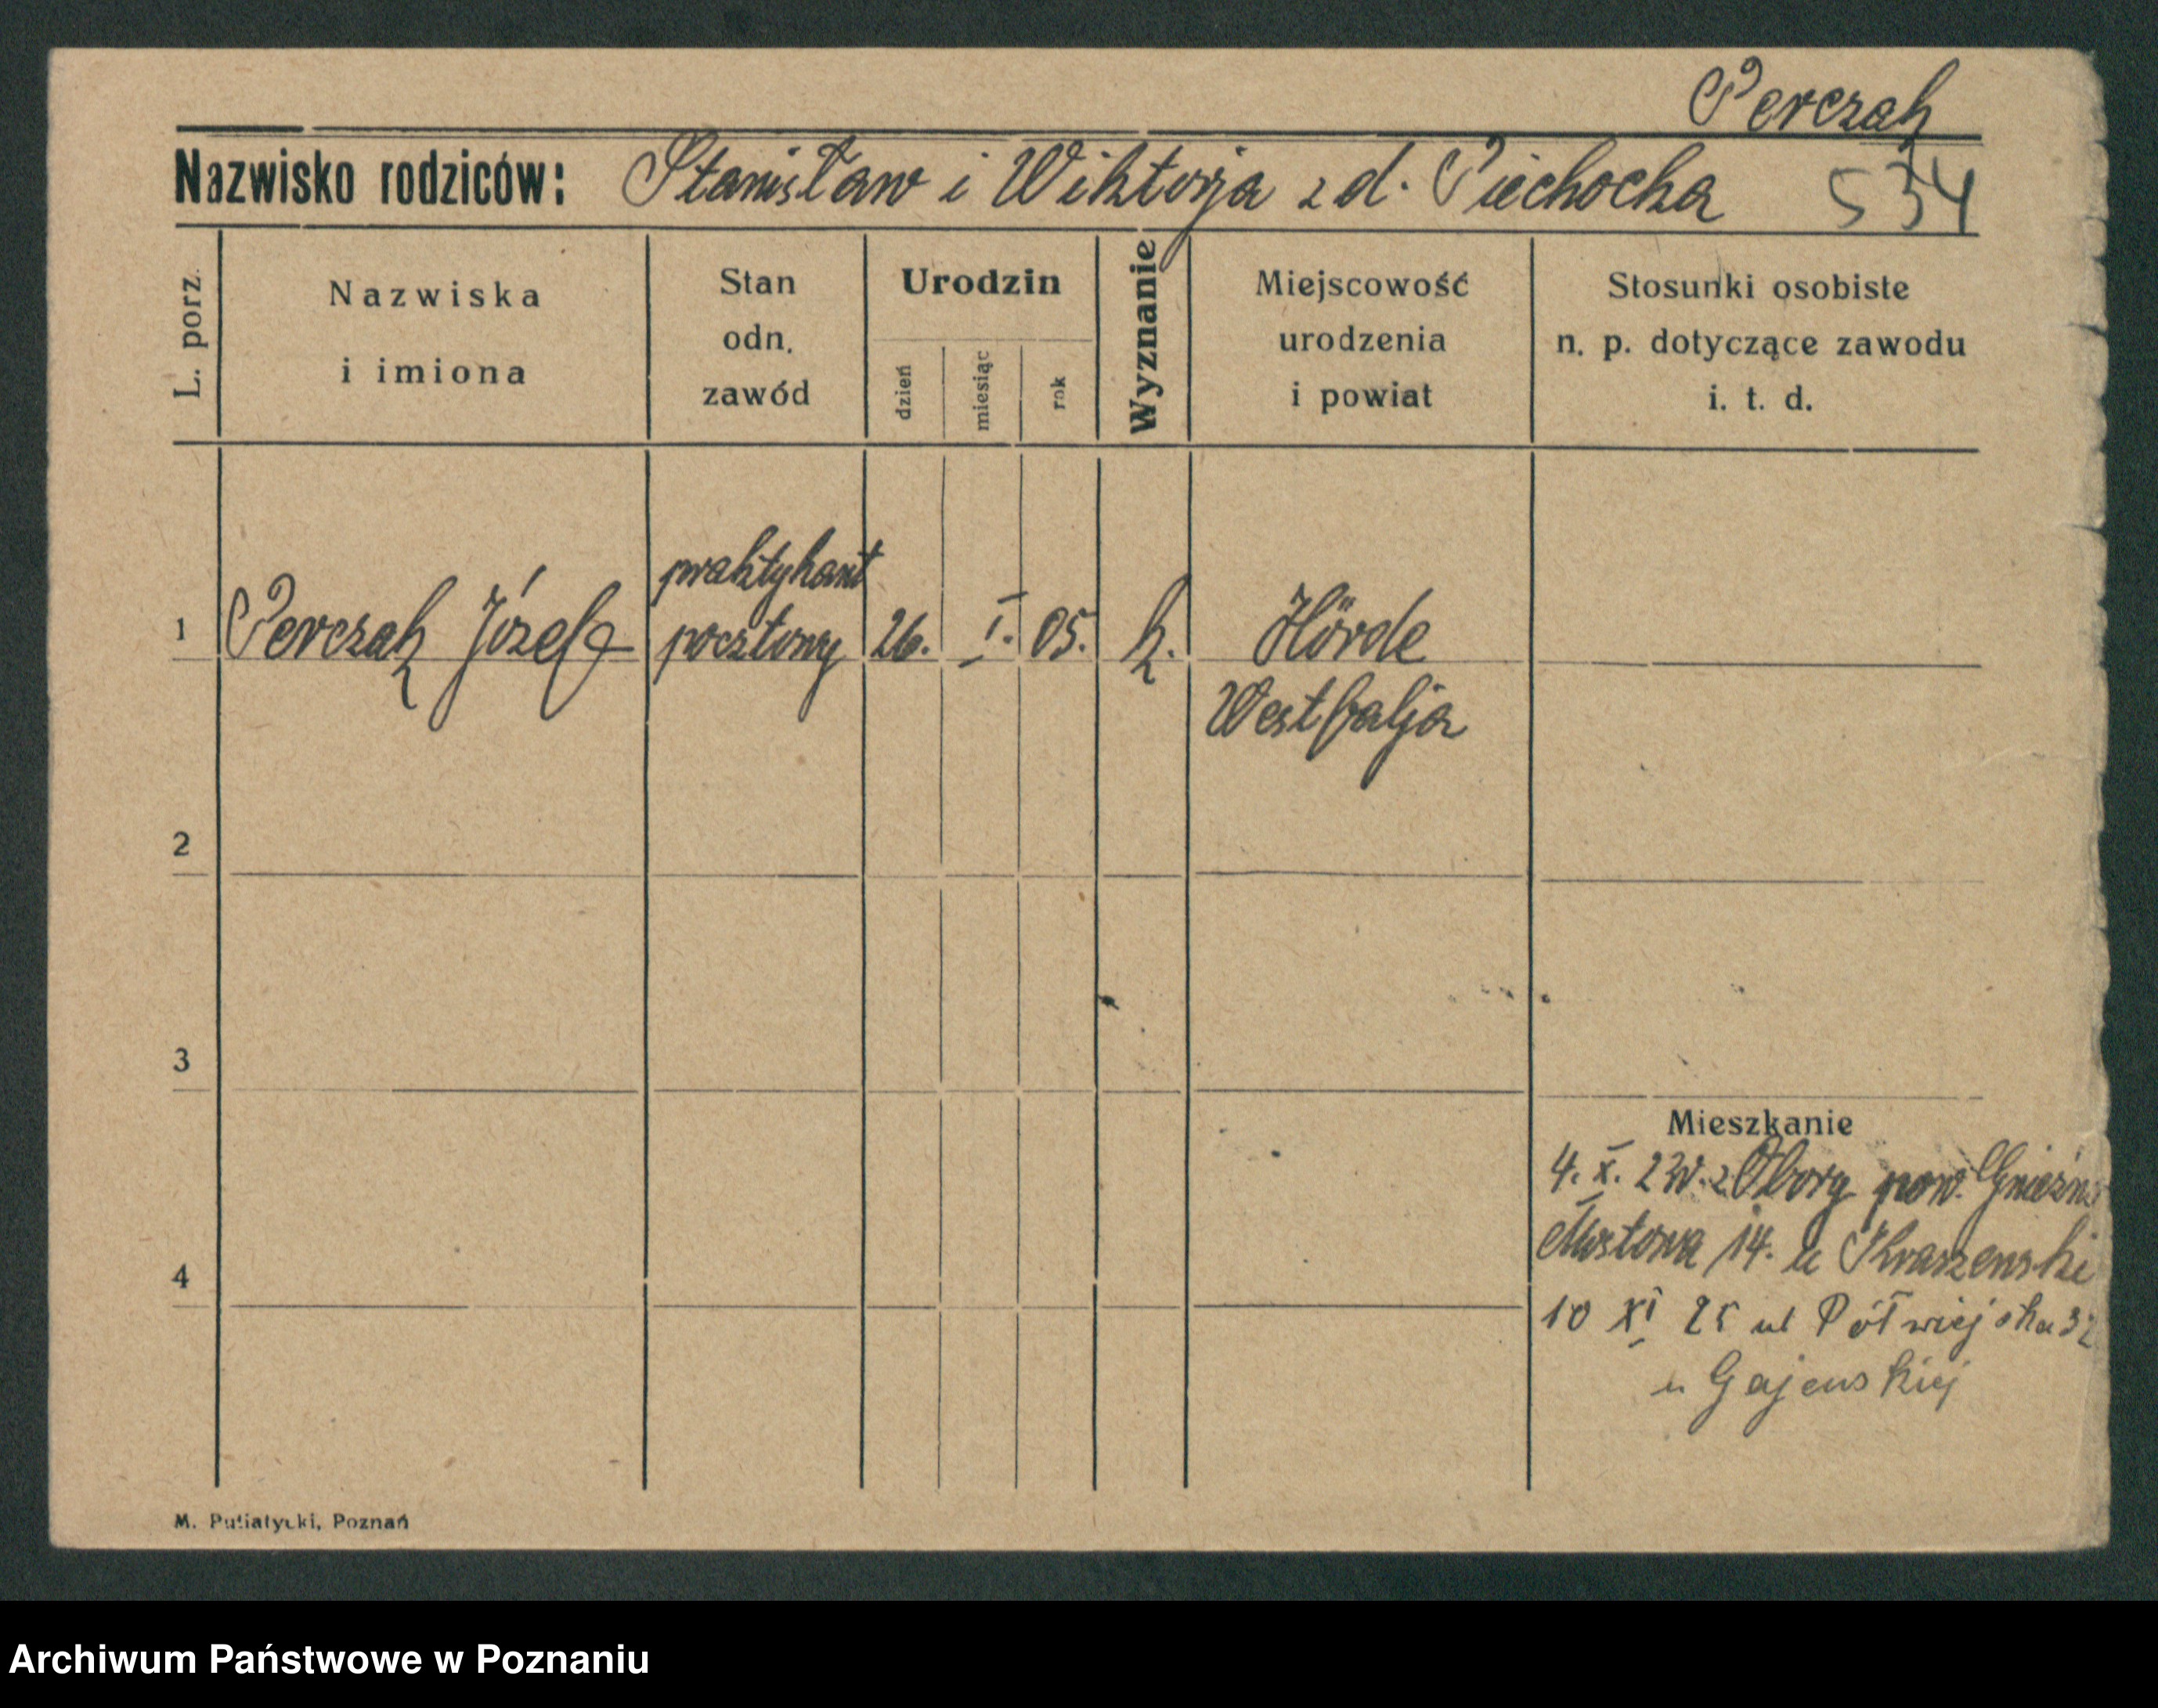 Perczak
Nazwisko rodziców: Stanisław i Wiktorja z d. Piechocka 534
L. porz.
Nazwiska
i imiona
Stan
odn.
zawód
Urodzin
dzień
miesiąc
rok
Wyznanie
Miejscowość
urodzenia
i powiat
Stosunki osobiste
n. p. dotyczące zawodu
i. t. d.
1 Perczak Józef praktykant pocztowy 26. I. 05. k. Hörde
Westfalja
2
3
Mieszkanie
4. X. z Obory pow. Gniezno
Mostowa 14. u Kraszewski
4
10 XI 25 ul Półwiejska 32
u Gajewskiej
M. Putiatycki, Poznań
Archiwum Państwowe w Poznaniu